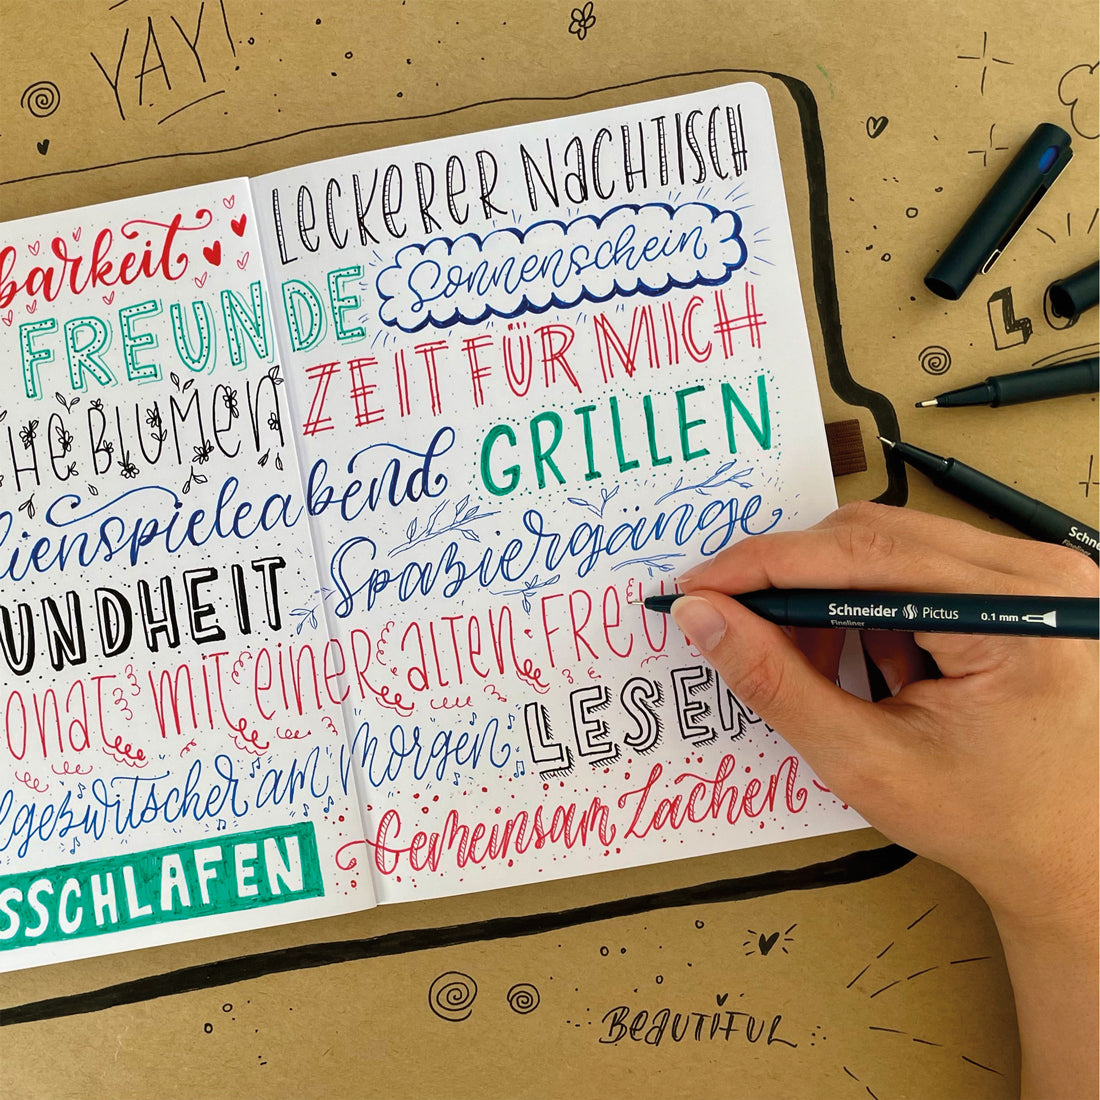 YAY!
LECKERER NACHTISCH
barkeit
Sonnenschein
FREUNDE
ZEIT FÜR MICH
HE BLUMEN
GRILLEN
ienspieleabend
Spaziergänge
UNDHEIT
onat mit einer alten FREU
LESEN
lgezwitscher am Morgen
Gemeinsam Lachen
SSCHLAFEN
BEAUTIFUL
Schneider Pictus 0.1 mm
Fineliner
Schne
Fineliner